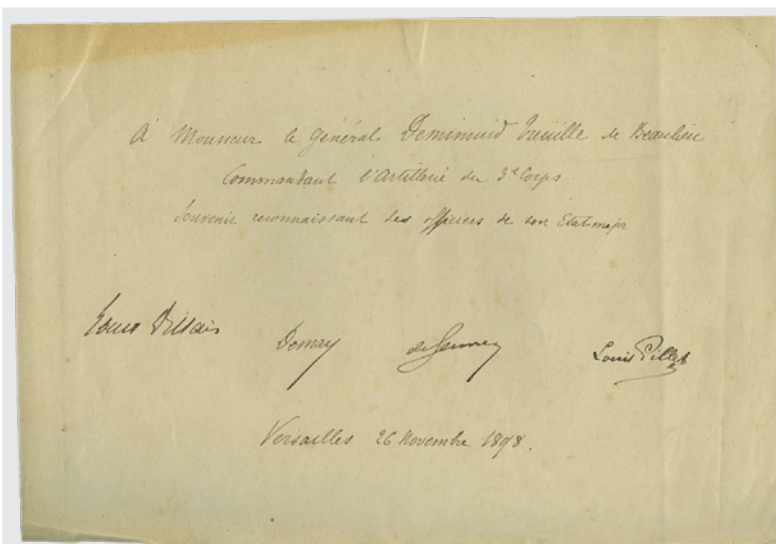 A Monsieur le Général Demimuid Treüille de Beaulieu
Commandant l'Artillerie du 3e Corps
Souvenir reconnaissant des officiers de son Etat-major
Louis
Demay
Louis Pillet
Versailles 26 Novembre 1898.